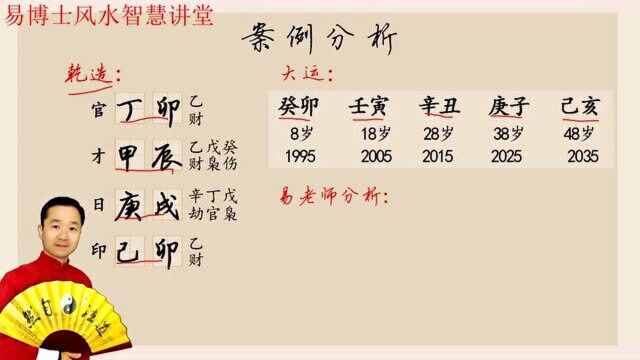 易博士风水智慧讲堂
案例分析
乾造：
官 丁卯 乙
财
才 甲辰 乙戊癸
财枭伤
日 庚戌 辛丁戊
劫官枭
印 己卯 乙
财
大运：
癸卯 壬寅 辛丑 庚子 己亥
8岁 18岁 28岁 38岁 48岁
1995 2005 2015 2025 2035
易老师分析：
然自法道